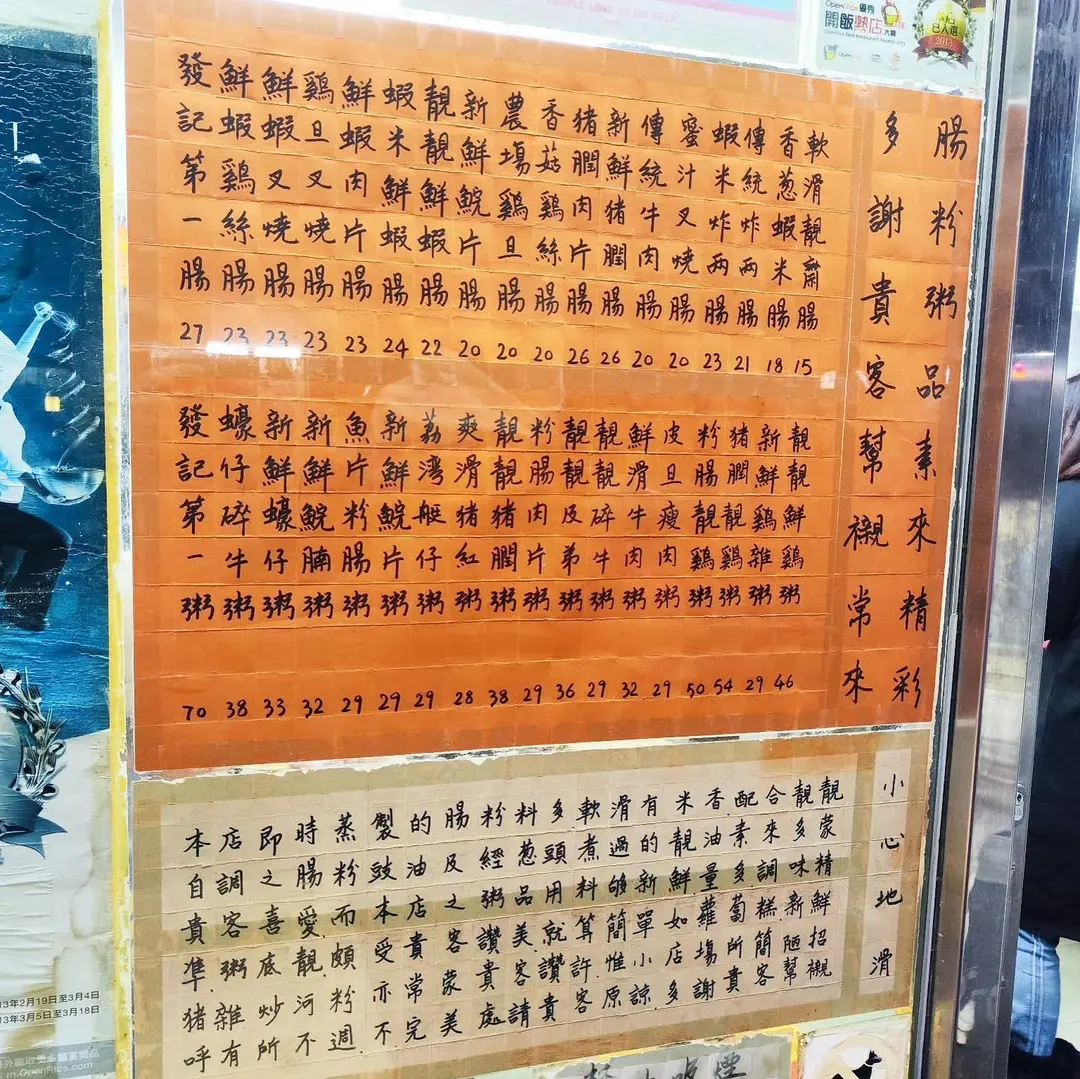 腸粉粥品素來精彩
多謝貴客幫襯常來
軟滑靚齋腸 15
香葱蝦米腸 18
傳統炸両腸 21
蝦米炸両腸 23
蜜汁叉燒腸 20
傳統牛肉腸 20
新鮮猪膶腸 26
猪膶肉片腸 26
香菇鷄絲腸 20
農塲鷄旦腸 20
新鮮鯇片腸 20
靚靚鮮蝦腸 22
蝦米鮮蝦腸 24
鮮蝦肉片腸 23
鷄旦叉燒腸 23
鮮蝦叉燒腸 23
鮮蝦鷄絲腸 23
發記第一腸 27
靚靚鮮鷄粥 46
新鮮鷄雜粥 29
猪膶靚鷄粥 54
粉腸靚鷄粥 50
皮旦瘦肉粥 29
鮮滑牛肉粥 32
靚靚碎牛粥 29
靚靚及弟粥 36
粉腸肉片粥 29
靚靚猪膶粥 38
爽滑猪紅粥 28
荔湾艇仔粥 29
新鮮鯇片粥 29
魚片粉腸粥 29
新鮮鯇腩粥 32
新鮮蠔仔粥 33
蠔仔碎牛粥 38
發記第一粥 70
小心地滑
本店即時蒸製的腸粉料多軟滑有米香配合靚靚
自調之腸粉豉油及經葱頭煮過的靚油素來多蒙
貴客喜愛而本店之粥品用料够新鮮量多調味精
準粥底靚頗受貴客讚美就算簡單如蘿蔔糕新鮮
猪雜炒河粉亦常蒙貴客讚許惟小店塲所簡陋招
呼有所不週不完美處請貴客原諒多謝貴客幫襯
OpenRice 優秀
開飯熱店大獎
已入選
2013
13年2月19日至3月4日
13年3月5日至3月18日
m.OpenRice.com